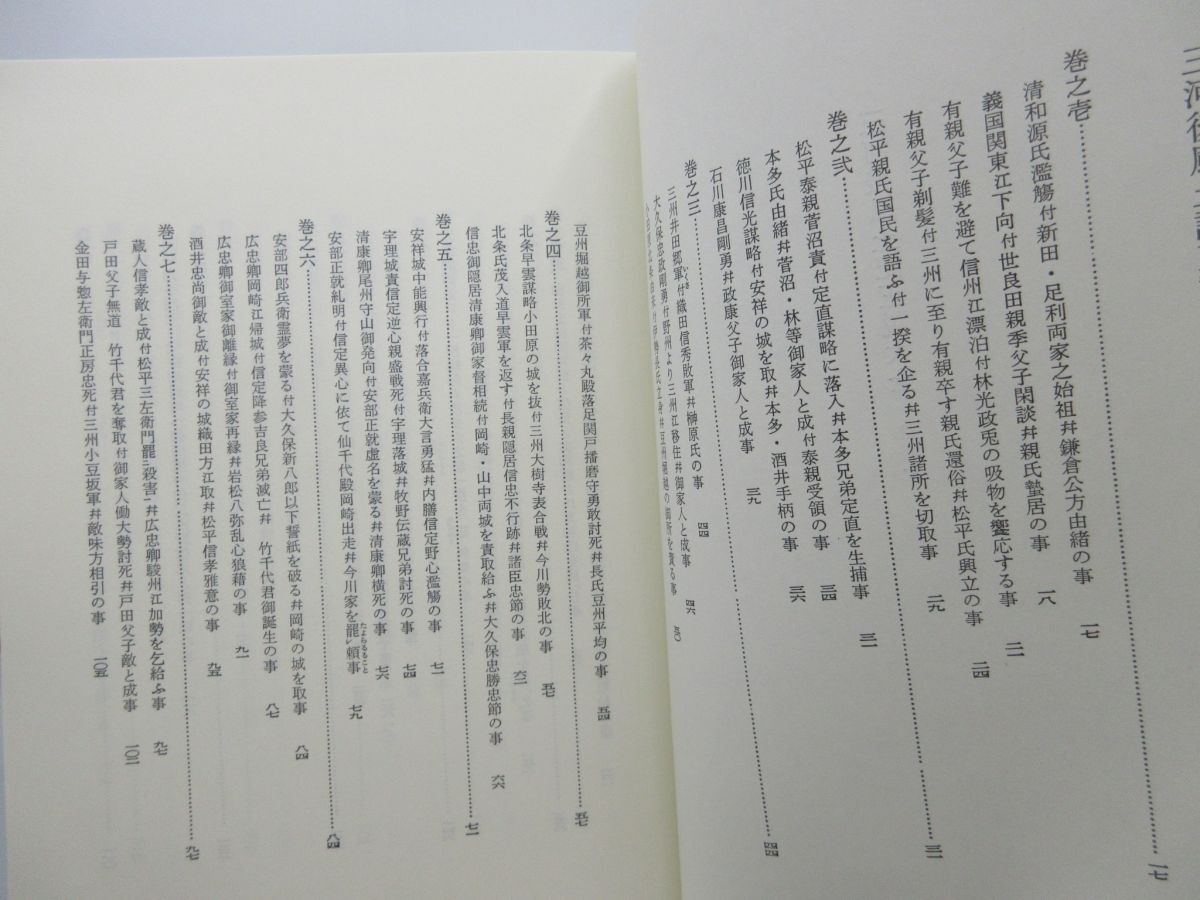 三河後風土記
巻之壱……一七
清和源氏濫觴付新田・足利両家之始祖幷鎌倉公方由緒の事　一七
義国関東江下向付世良田親季父子閑談幷親氏蟄居の事　一八
有親父子難を避て信州江漂泊付林光政兎の吸物を饗応する事　二一
有親父子剃髪付三州に至り有親卒す親氏還俗幷松平氏興立の事　二四
松平親氏国民を語ふ付一揆を企る幷三州諸所を切取事　二九
巻之弐……三一
松平泰親菅沼責付定直謀略に落入幷本多兄弟定直を生捕事　三一
本多氏由緒幷菅沼・林等御家人と成付泰親受領の事　三四
徳川信光謀略付安祥の城を取幷本多・酒井手柄の事　三六
石川康昌剛勇幷政康父子御家人と成事　三九
巻之三……四四
三州井田郷軍付織田信秀敗軍幷榊原氏の事　四四
大久保忠政剛勇付野州より三州江移住幷御家人と成事　四六
豆州堀越御所軍付茶々丸殿落足関戸播磨守勇敢討死幷長氏豆州平均の事　五四
巻之四……五七
北条早雲謀略小田原の城を抜付三州大樹寺表合戦幷今川勢敗北の事　五七
北条氏茂入道早雲軍を返す付長親隠居信忠不行跡幷諸臣忠節の事　六二
信忠御隠居清康卿御家督相続付岡崎・山中両城を責取給ふ幷大久保忠勝忠節の事　六六
巻之五……七一
安祥城中能興行付落合嘉兵衛大言勇猛幷内膳信定野心濫觴の事　七一
宇理城責信定逆心親盛戦死付宇理落城幷牧野伝蔵兄弟討死の事　七四
清康卿尾州守山御発向付安部正就虚名を蒙る幷清康卿横死の事　七六
安部正就糺明付信定異心に依て仙千代殿岡崎出走幷今川家を罷レ頼事　七九
たよらるること
巻之六……八四
安部四郎兵衛霊夢を蒙る付大久保新八郎以下誓紙を破る幷岡崎の城を取事　八四
広忠卿岡崎江帰城付信定降参吉良兄弟滅亡幷　竹千代君御誕生の事　八七
広忠卿御室家御離縁付御室家再縁幷岩松八弥乱心狼藉の事　九一
酒井忠尚御敵と成付安祥の城織田方江取幷松平信孝雅意の事　九五
巻之七……九七
蔵人信孝敵と成付松平三左衛門罷二殺害一幷広忠卿駿州江加勢を乞給ふ事　九七
戸田父子無道　竹千代君を奪取付御家人働大勢討死幷戸田父子敵と成事　一〇二
金田与惣左衛門正房忠死付三州小豆坂軍幷敵味方相引の事　一〇五